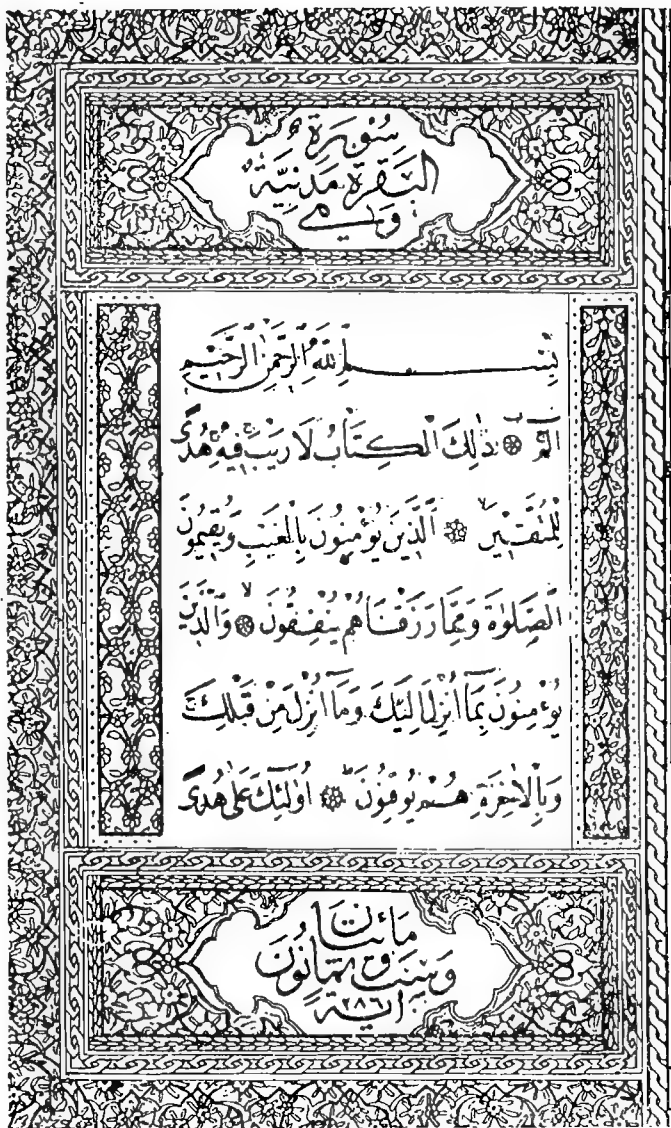 سُورَةُ
الْبَقَرَةِ مَدَنِيَّةٌ
وَهِيَ
بِسْمِ اللّٰهِ الرَّحْمٰنِ الرَّحِيمِ
الٓمٓ ۝ ذٰلِكَ الْكِتَابُ لَا رَيْبَ فِيهِ هُدًى
لِلْمُتَّقِينَ ۝ اَلَّذِينَ يُؤْمِنُونَ بِالْغَيْبِ وَيُقِيمُونَ
الصَّلٰوةَ وَمِمَّا رَزَقْنَاهُمْ يُنْفِقُونَ ۝ وَالَّذِينَ
يُؤْمِنُونَ بِمَٓا اُنْزِلَ اِلَيْكَ وَمَٓا اُنْزِلَ مِنْ قَبْلِكَ
وَبِالْاٰخِرَةِ هُمْ يُوقِنُونَ ۝ اُولٰٓئِكَ عَلٰى هُدًى
مَائَتَانِ
وَسِتٌّ وَثَمَانُونَ
اٰيَةً ٢٨٦